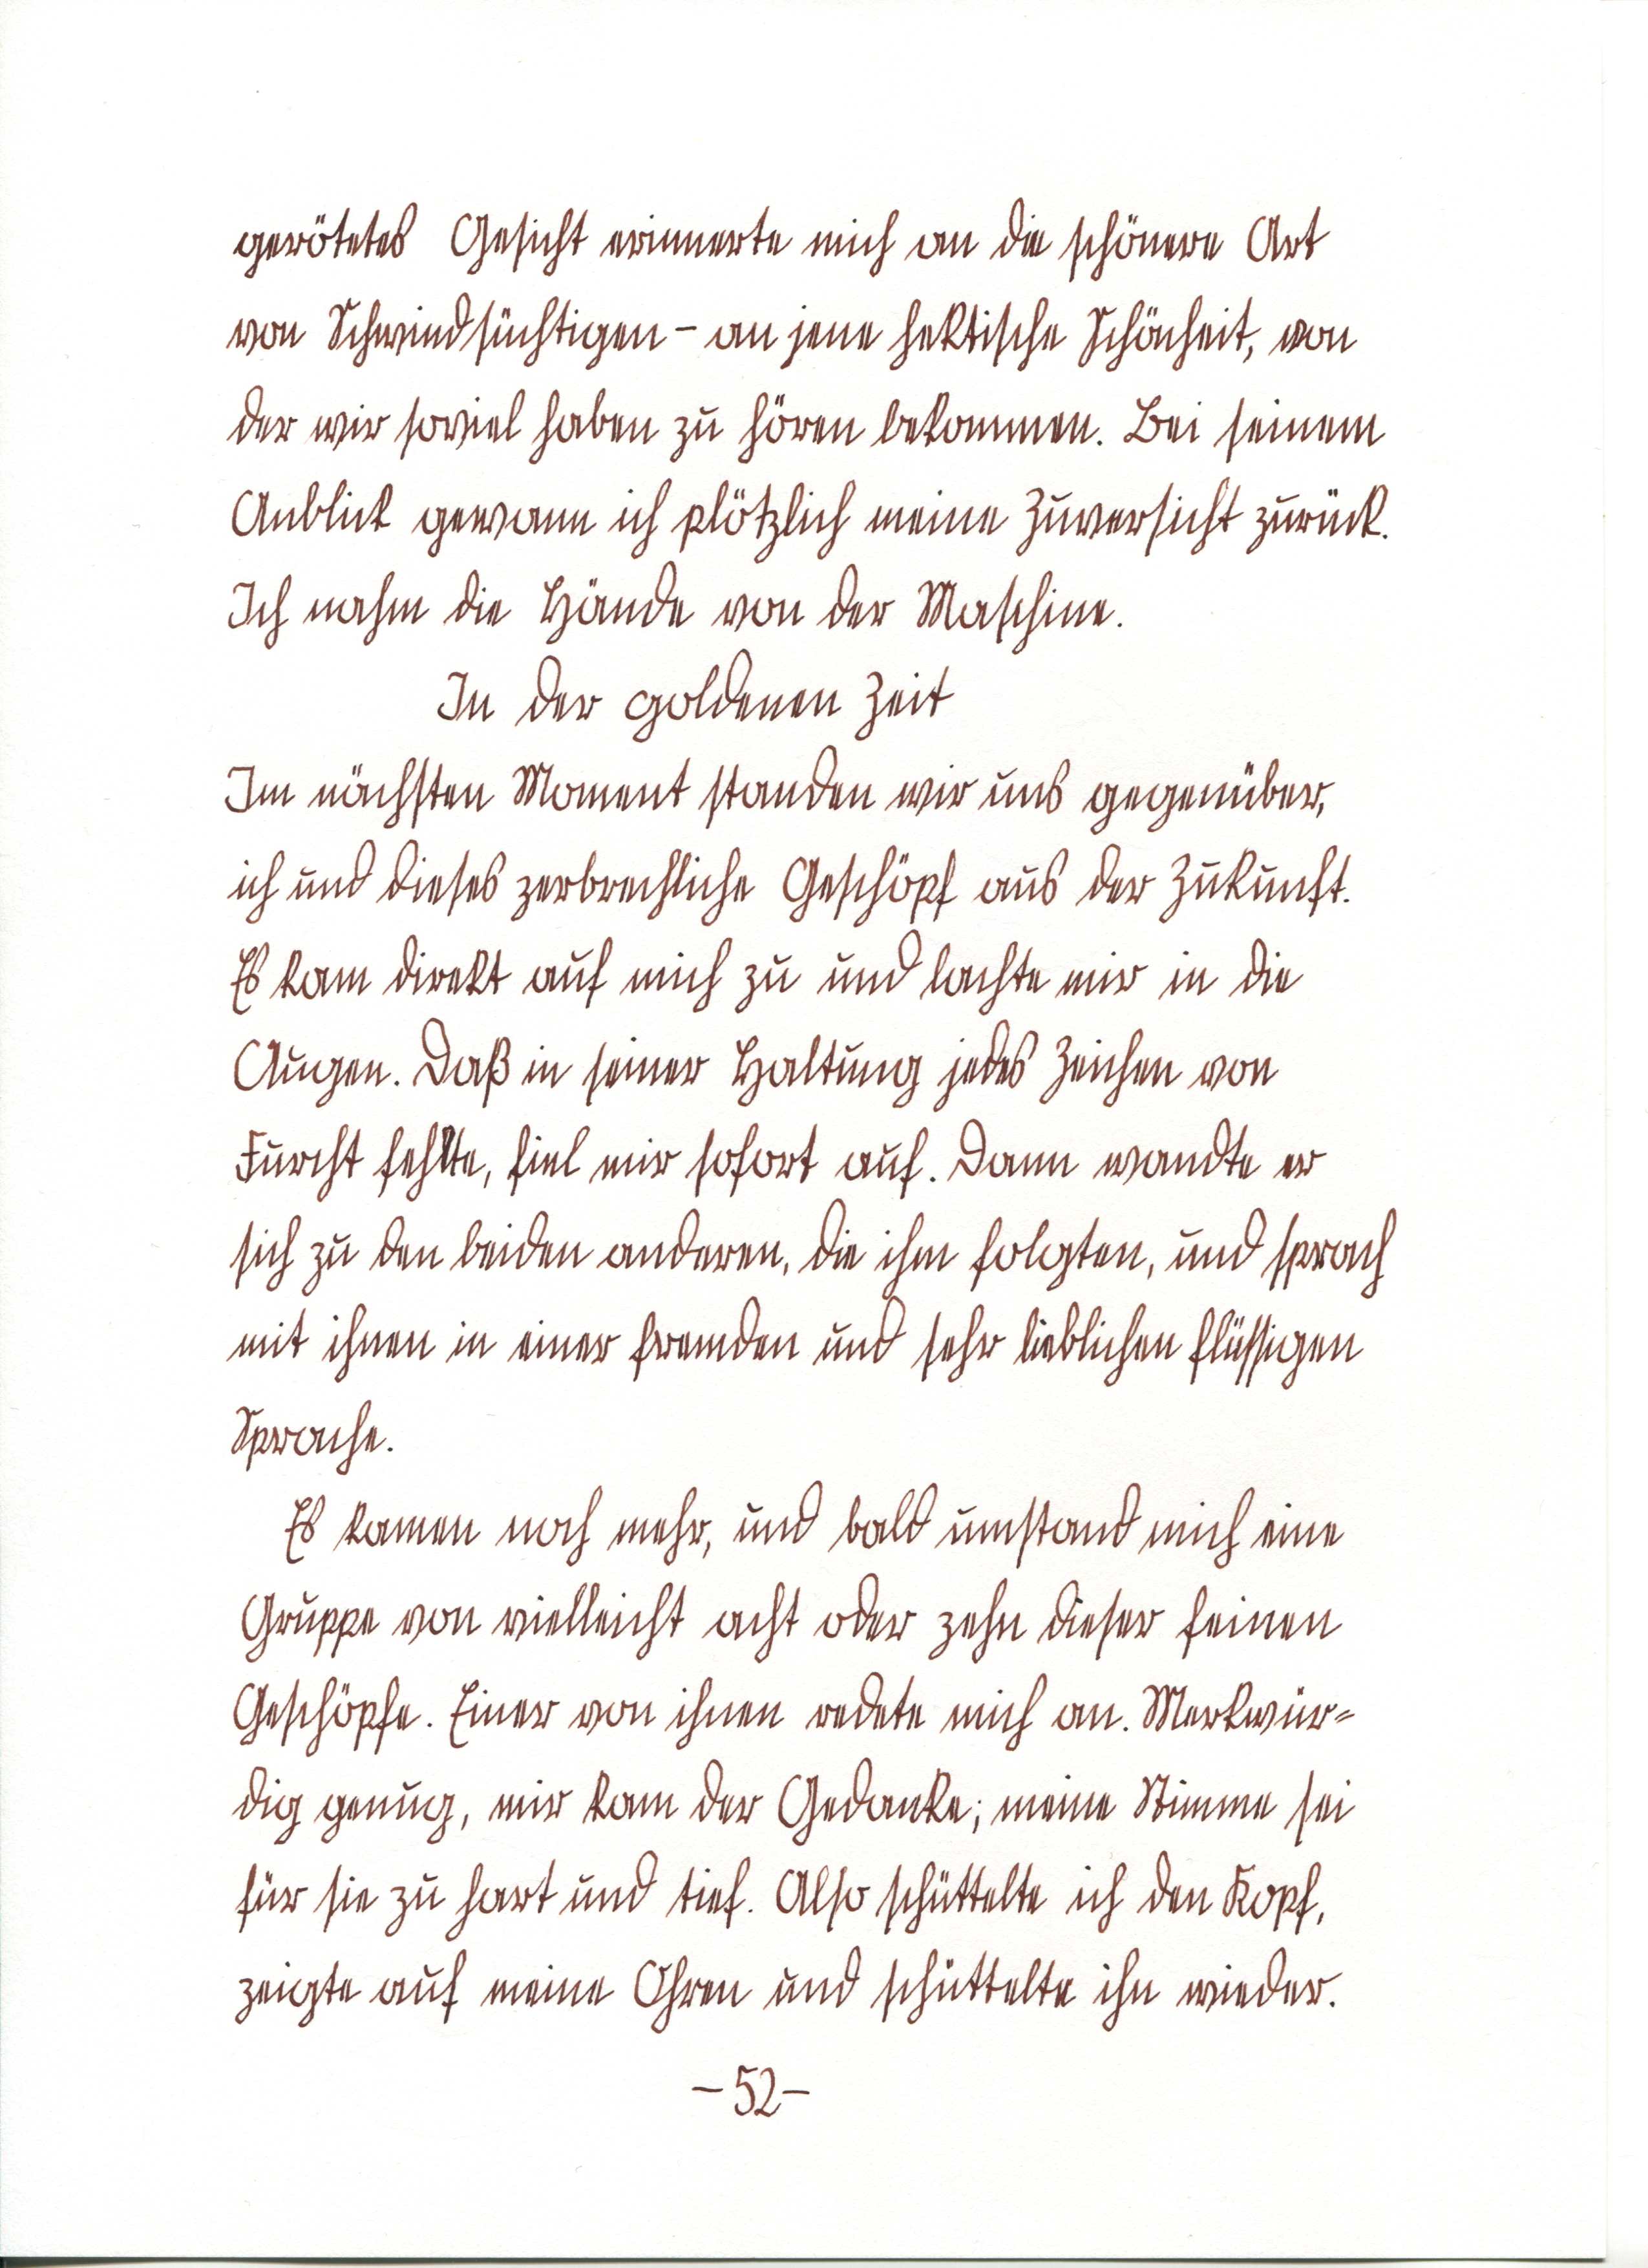 gerötetes Gesicht erinnerte mich an die schönere Art
von Schwindsüchtigen – an jene hektische Schönheit, von
der wir soviel haben zu hören bekommen. Bei seinem
Anblick gewann ich plötzlich meine Zuversicht zurück.
Ich nahm die Hände von der Maschine.
In der goldenen Zeit
Im nächsten Moment standen wir uns gegenüber,
ich und dieses zerbrechliche Geschöpf aus der Zukunft.
Es kam direkt auf mich zu und lachte mir in die
Augen. Daß in seiner Haltung jedes Zeichen von
Furcht fehlte, fiel mir sofort auf. Dann wandte er
sich zu den beiden anderen, die ihm folgten, und sprach
mit ihnen in einer fremden und sehr lieblichen flüssigen
Sprache.
Es kamen noch mehr, und bald umstand mich eine
Gruppe von vielleicht acht oder zehn dieser feinen
Geschöpfe. Einer von ihnen redete mich an. Merkwür=
dig genug, mir kam der Gedanke; meine Stimme sei
für sie zu hart und tief. Also schüttelte ich den Kopf,
zeigte auf meine Ohren und schüttelte ihn wieder.
– 52 –